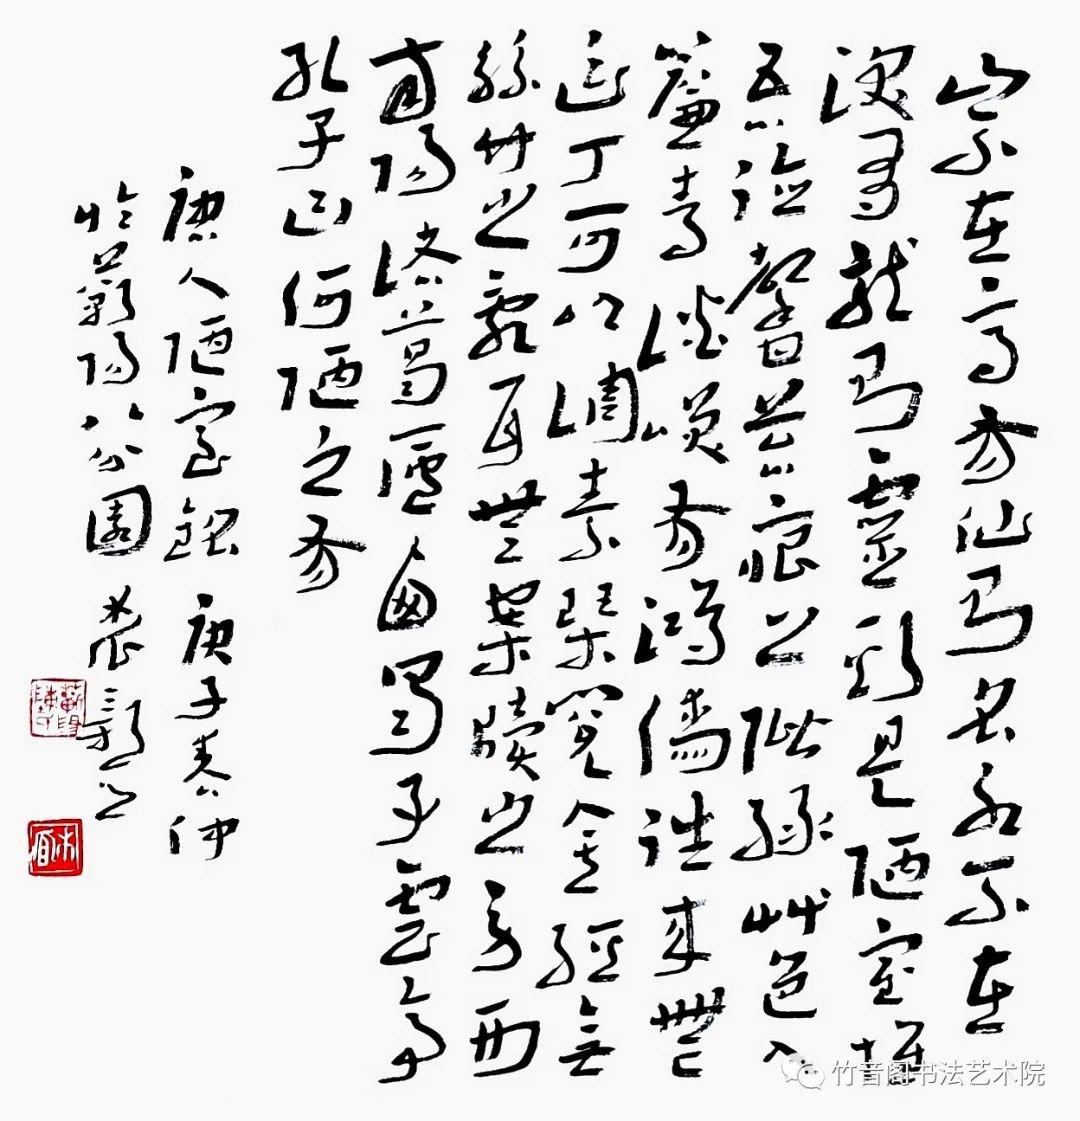 山不在高有仙則名水不在
深有龍則靈斯是陋室惟
吾德馨苔痕上階緑艸色入
簾青談笑有鴻儒往來無
白丁可以調素琴閱金經無
絲竹之亂耳無案牘之勞形
南陽諸葛廬西蜀子雲亭
孔子云何陋之有
唐人陋室銘 庚子春仲
於蘄陽八分園
竹音阁书法艺术院